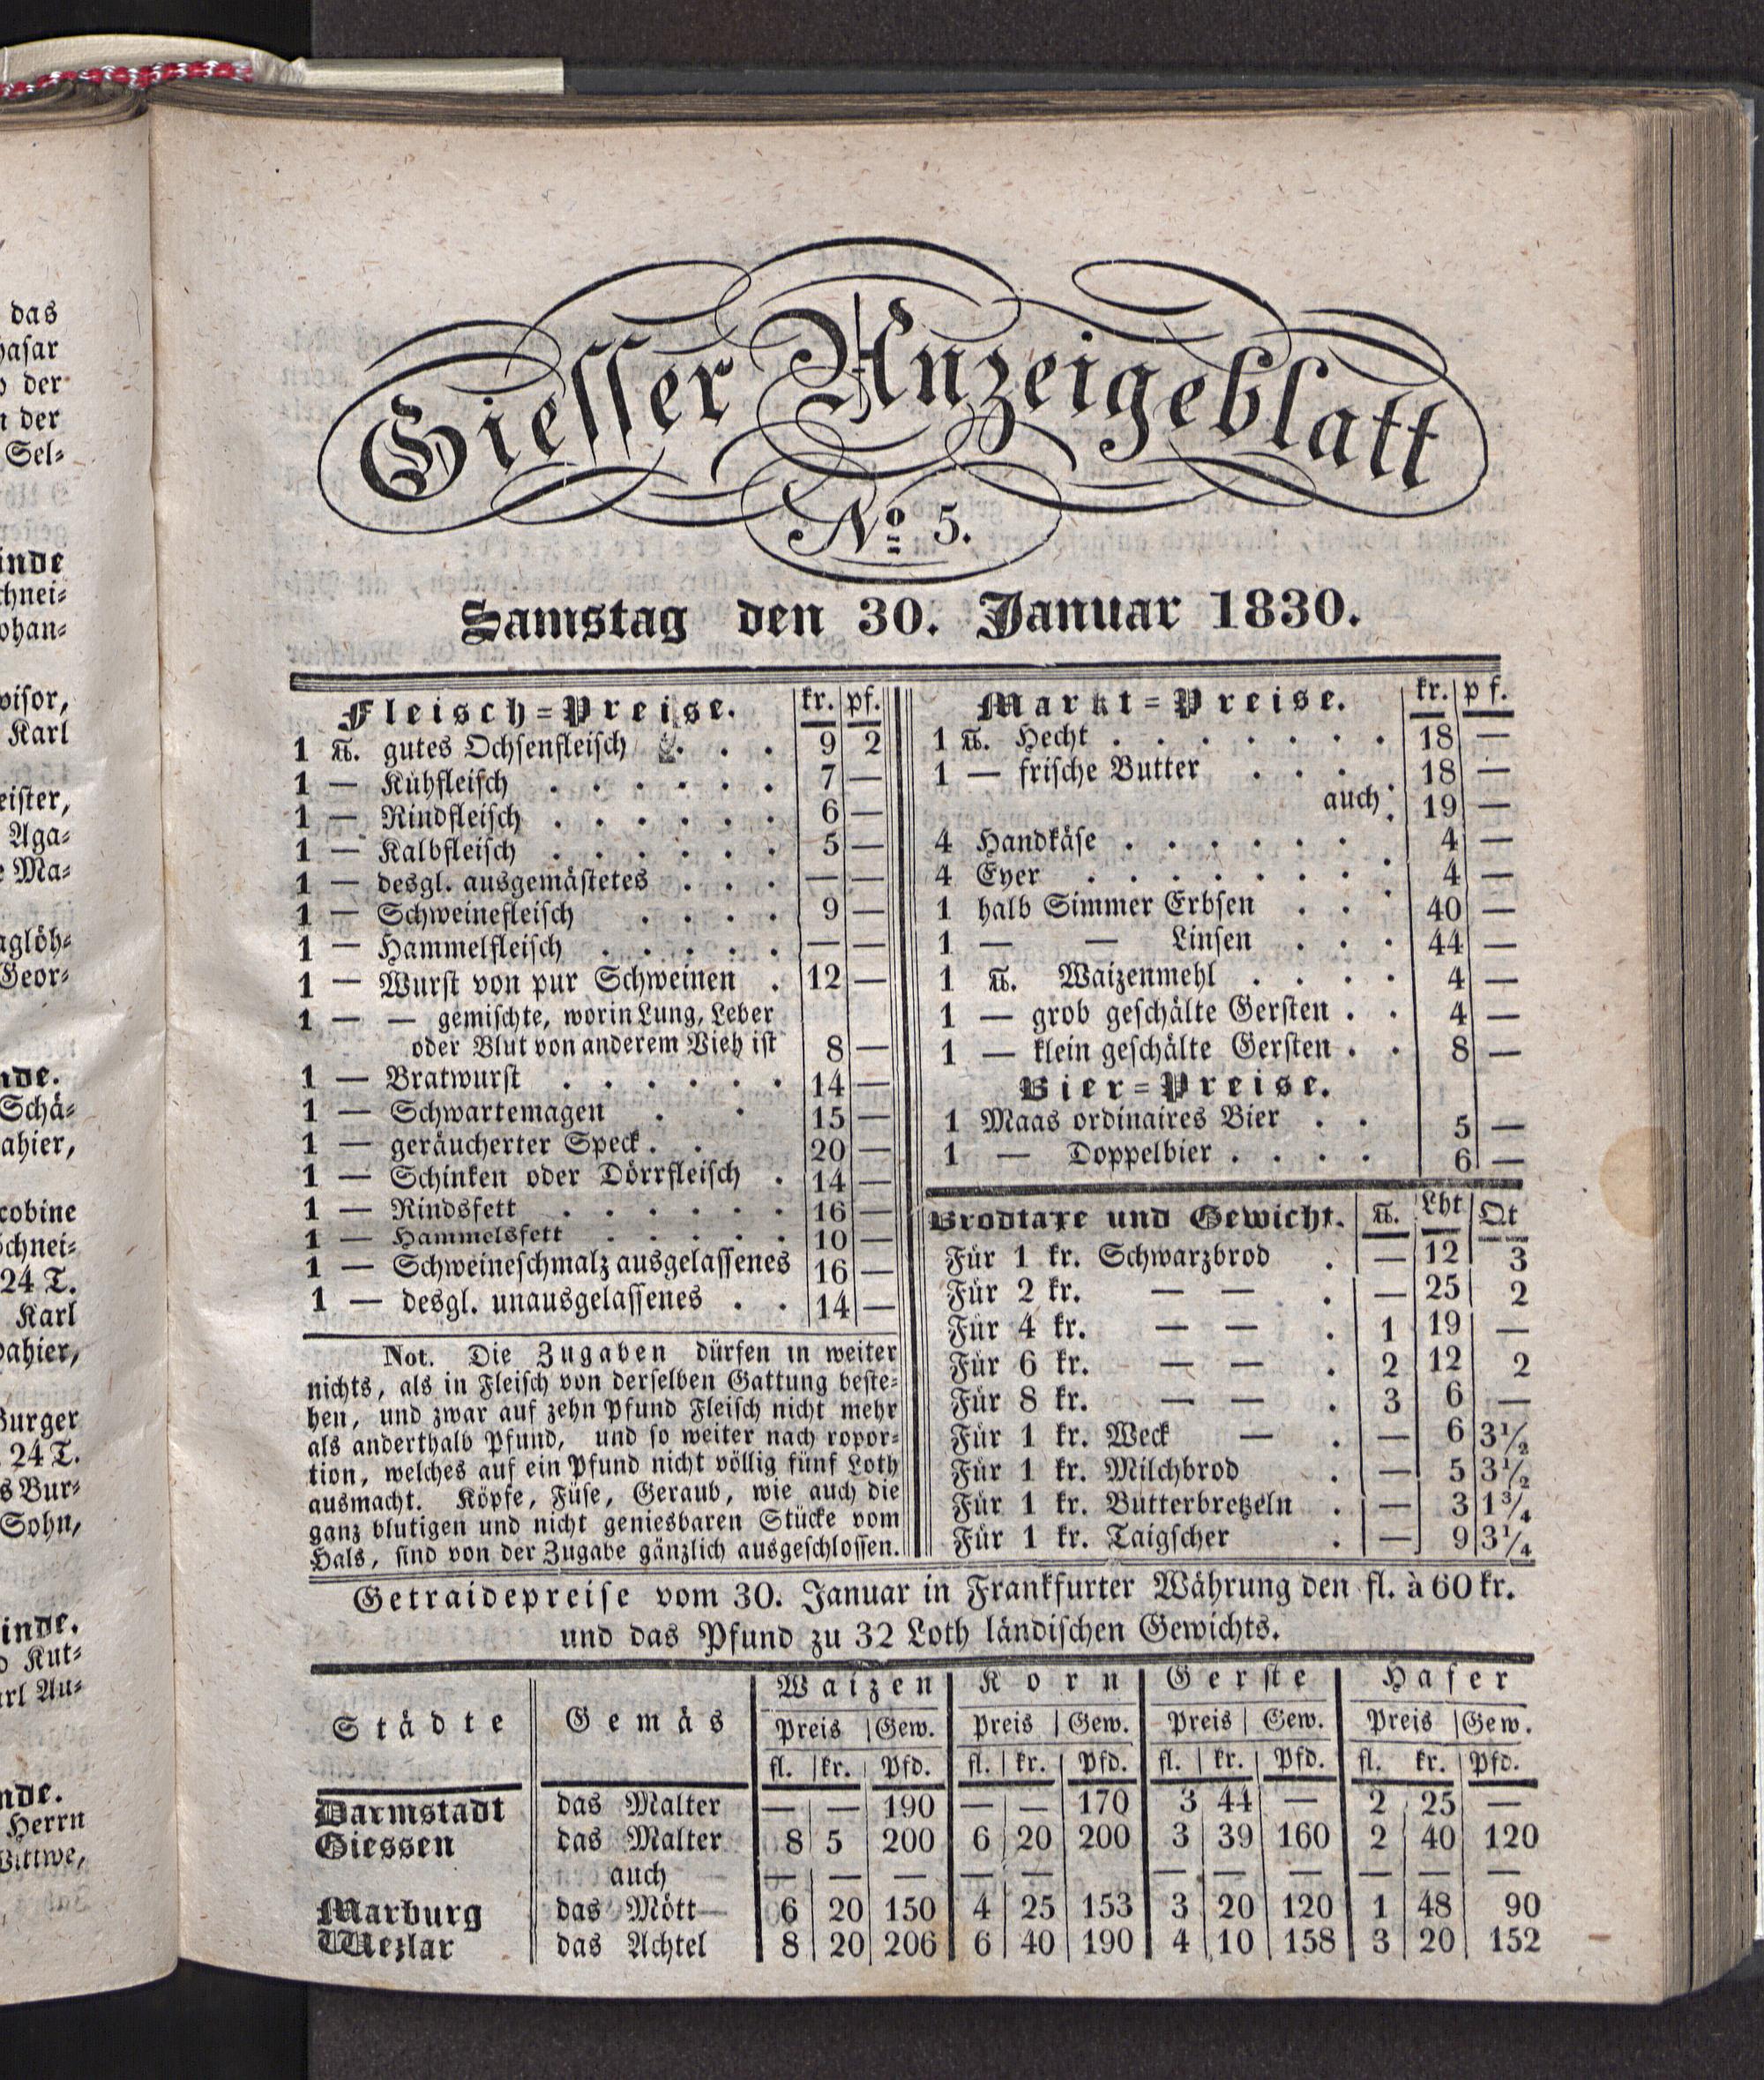 das
hasar
der
der
Sel-
inde
chnei-
ohan-
visor,
Karl
eister,
Aga-
Ma-
aglöh-
Geor-
nde.
Schä-
ahier,
cobine
chnei-
24 T.
Karl
dahier,
Burger
24 T.
s Bur-
Sohn,
inde.
Kut-
arl Au-
nde.
Herrn
Wittwe,
Giesser Anzeigeblatt
No 5.
Samstag den 30. Januar 1830.
Fleisch-Preise. kr. pf.
1 ℔. gutes Ochsenfleisch . . . 9 2
1 — Kühfleisch . . . . . . 7 —
1 — Rindfleisch . . . . . . 6 —
1 — Kalbfleisch . . . . . . 5 —
1 — desgl. ausgemästetes . . . — —
1 — Schweinefleisch . . . . 9 —
1 — Hammelfleisch . . . . . — —
1 — Wurst von pur Schweinen . 12 —
1 — — gemischte, worin Lung, Leber
oder Blut von anderem Vieh ist 8 —
1 — Bratwurst . . . . . . 14 —
1 — Schwartemagen . . 15 —
1 — geräucherter Speck . . 20 —
1 — Schinken oder Dörrfleisch . 14 —
1 — Rindsfett . . . . . . 16 —
1 — Hammelsfett . . . . . 10 —
1 — Schweineschmalz ausgelassenes 16 —
1 — desgl. unausgelassenes . . 14 —
Not. Die Zugaben dürfen in weiter
nichts, als in Fleisch von derselben Gattung beste-
hen, und zwar auf zehn Pfund Fleisch nicht mehr
als anderthalb Pfund, und so weiter nach ropor-
tion, welches auf ein Pfund nicht völlig fünf Loth
ausmacht. Köpfe, Füse, Geraub, wie auch die
ganz blutigen und nicht geniesbaren Stücke vom
Hals, sind von der Zugabe gänzlich ausgeschlossen.
Markt-Preise. kr. pf.
1 ℔. Hecht . . . . . . . 18 —
1 — frische Butter . . . 18 —
auch . 19 —
4 Handkäse . . . . . . 4 —
4 Eyer . . . . . . . 4 —
1 halb Simmer Erbsen . . . 40 —
1 — — Linsen . . . 44 —
1 ℔. Waizenmehl . . . . 4 —
1 — grob geschälte Gersten . . 4 —
1 — klein geschälte Gersten . . 8 —
Bier-Preise.
1 Maas ordinaires Bier . . 5 —
1 — Doppelbier . . . . 6 —
Brodtaxe und Gewicht. ℔. Lht Qt
Für 1 kr. Schwarzbrod . — 12 3
Für 2 kr. — — . — 25 2
Für 4 kr. — — . 1 19 —
Für 6 kr. — — . 2 12 2
Für 8 kr. — — . 3 6 —
Für 1 kr. Weck — . — 6 3½
Für 1 kr. Milchbrod . — 5 3½
Für 1 kr. Butterbretzeln . — 3 1¾
Für 1 kr. Taigscher . — 9 3¼
Getraidepreise vom 30. Januar in Frankfurter Währung den fl. à 60 kr.
und das Pfund zu 32 Loth ländischen Gewichts.
Städte Gemäs Waizen Korn Gerste Hafer
Preis Gew. Preis Gew. Preis Gew. Preis Gew.
fl. kr. Pfd. fl. kr. Pfd. fl. kr. Pfd. fl. kr. Pfd.
Darmstadt das Malter — — 190 — — 170 3 44 — 2 25 —
Giessen das Malter 8 5 200 6 20 200 3 39 160 2 40 120
auch — — — — — — — — — — —
Marburg das Mött — 6 20 150 4 25 153 3 20 120 1 48 90
Wezlar das Achtel 8 20 206 6 40 190 4 10 158 3 20 152